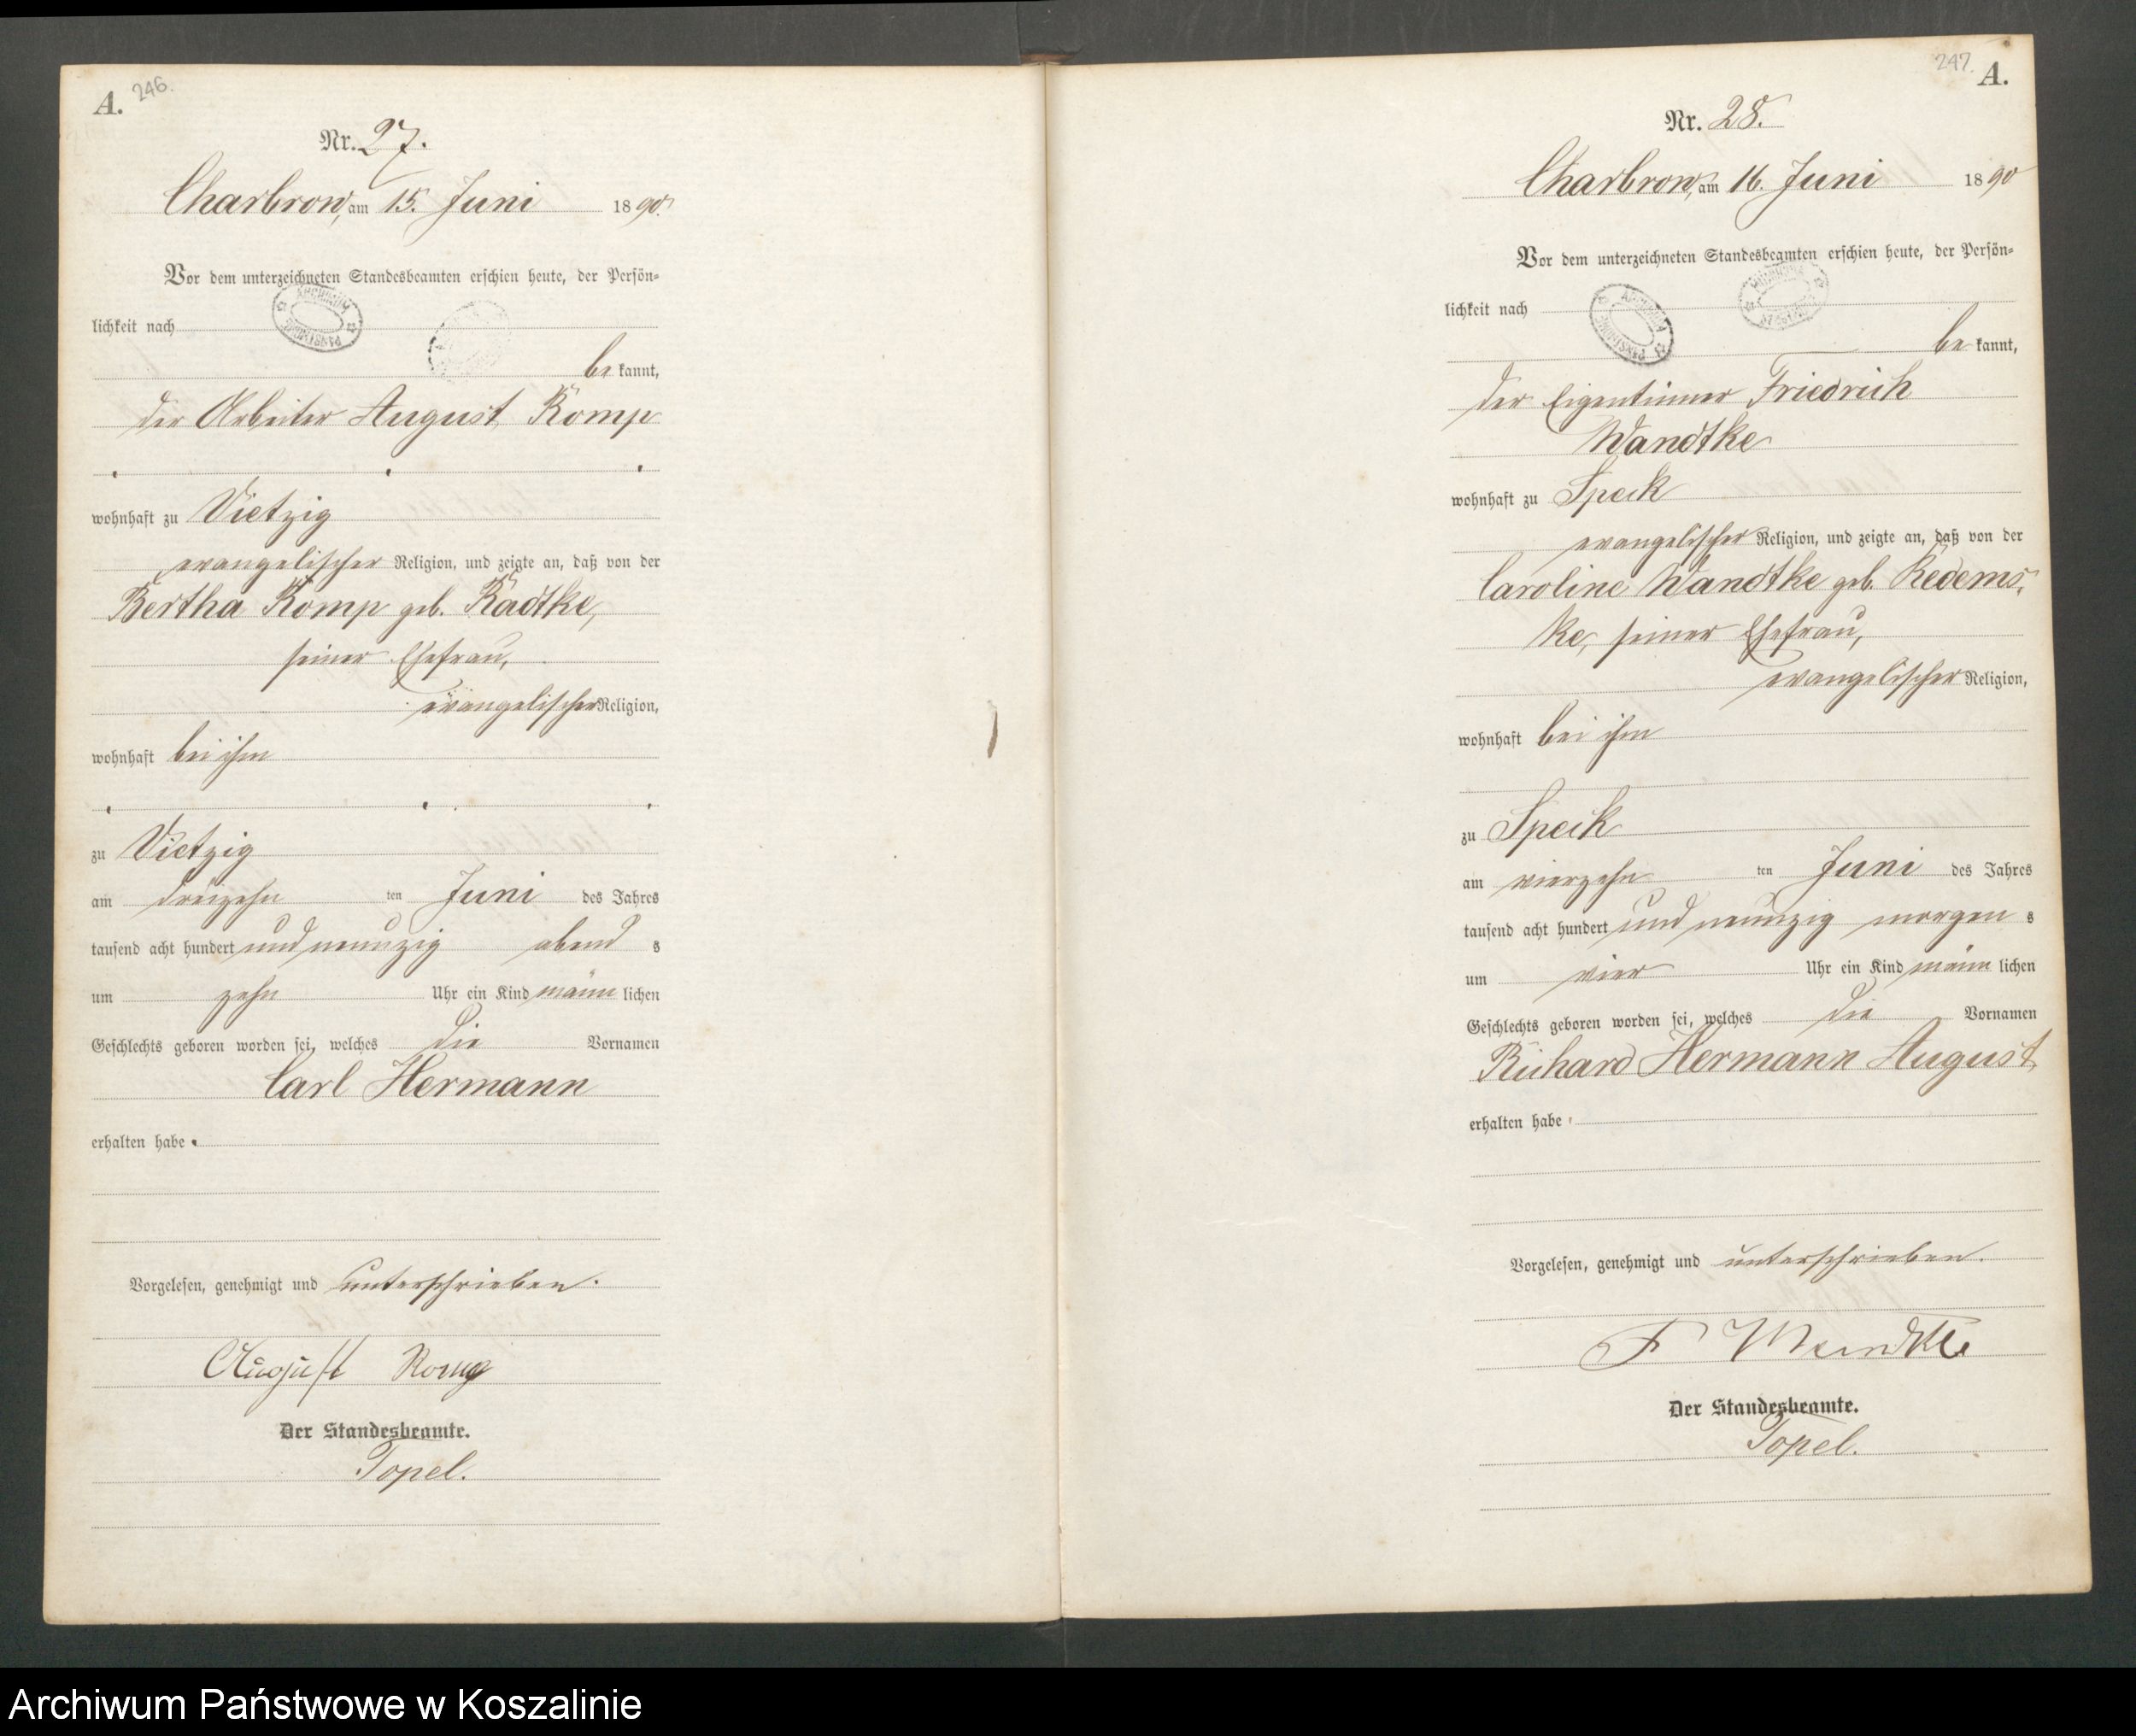 A. 246.
Nr. 27.
Charbrow, am 15. Juni 1890.
Vor dem unterzeichneten Standesbeamten erschien heute, der Persön-
lichkeit nach
be kannt,
der Arbeiter August Komp
wohnhaft zu Vietzig
evangelischer Religion, und zeigte an, daß von der
Bertha Komp geb. Radtke,
seiner Ehefrau,
evangelischer Religion,
wohnhaft bei ihm
zu Vietzig
am dreizehn ten Juni des Jahres
tausend acht hundert und neunzig abend s
um zehn Uhr ein Kind männ lichen
Geschlechts geboren worden sei, welches die Vornamen
Carl Hermann
erhalten habe.
Vorgelesen, genehmigt und unterschrieben.
August Komp
Der Standesbeamte.
Topel.
247. A.
Nr. 28.
Charbrow, am 16. Juni 1890
Vor dem unterzeichneten Standesbeamten erschien heute, der Persön-
lichkeit nach
be kannt,
der Eigentümer Friedrich
Wandtke
wohnhaft zu Speck
evangelischer Religion, und zeigte an, daß von der
Caroline Wandtke geb. Redems-
ke, seiner Ehefrau,
evangelischer Religion,
wohnhaft bei ihm
zu Speck
am vierzehn ten Juni des Jahres
tausend acht hundert und neunzig morgen s
um vier Uhr ein Kind männ lichen
Geschlechts geboren worden sei, welches die Vornamen
Richard Hermann August
erhalten habe
Vorgelesen, genehmigt und unterschrieben.
F Wandtke
Der Standesbeamte.
Topel.
Archiwum Państwowe w Koszalinie